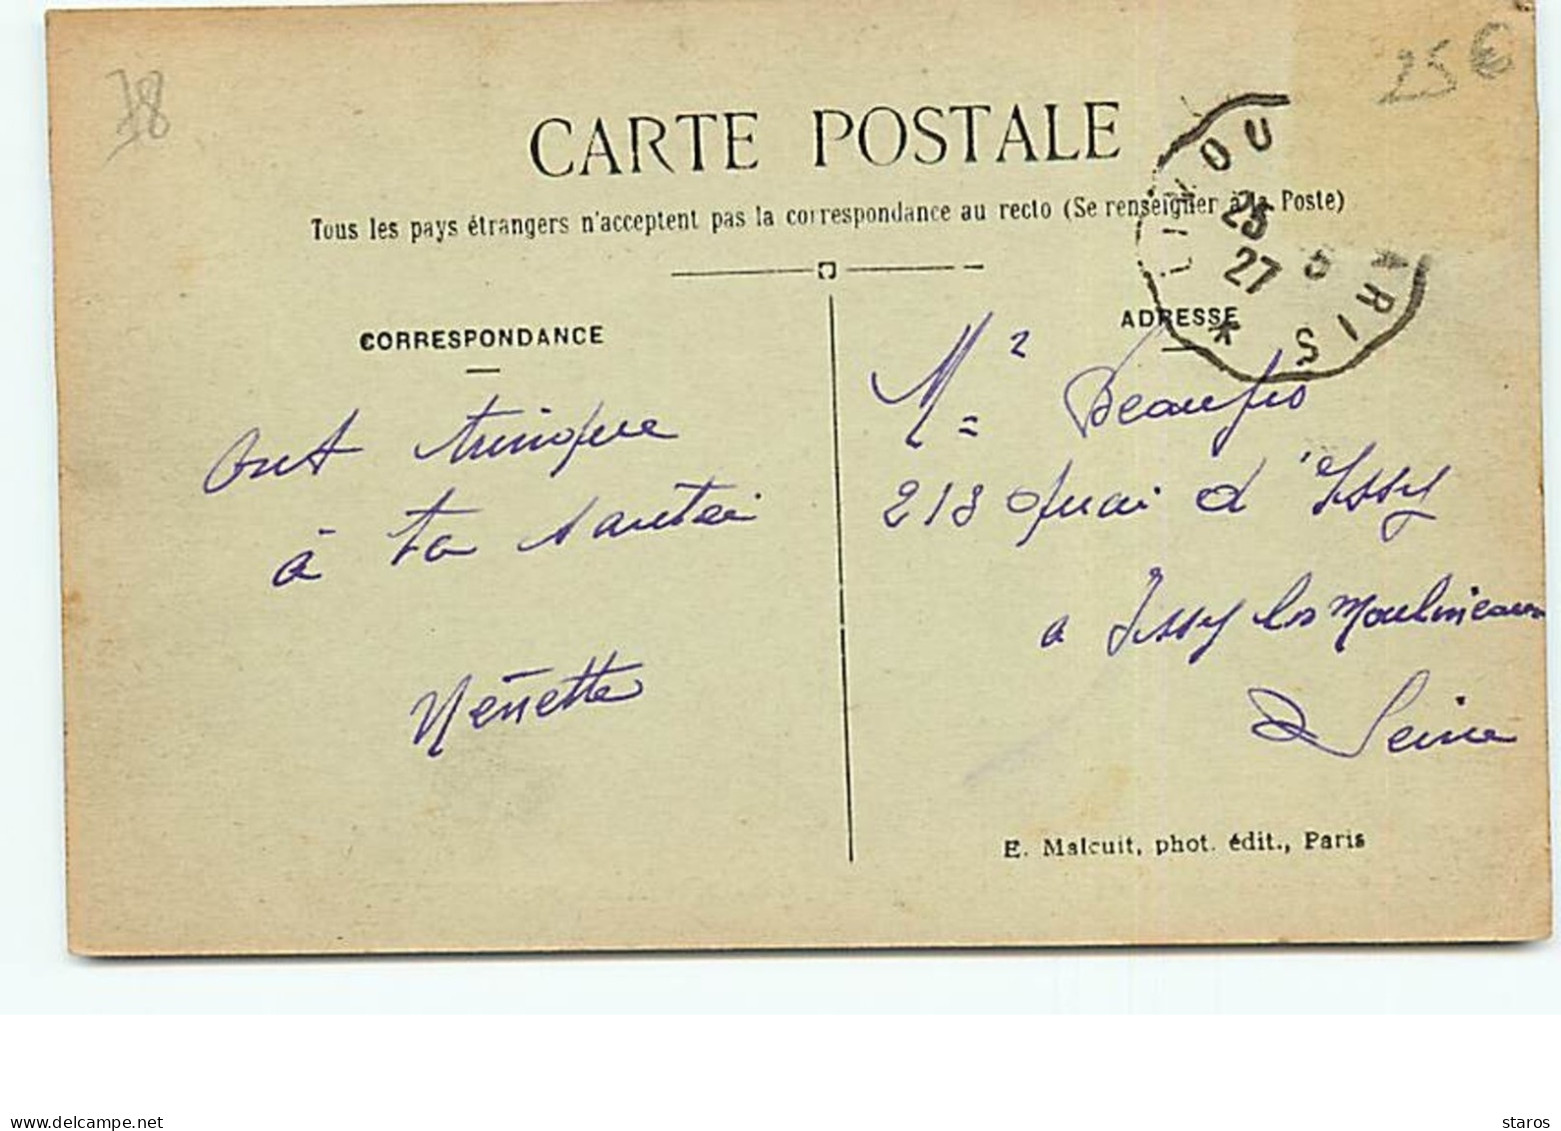 78
25€
CARTE POSTALE
Tous les pays étrangers n'acceptent pas la correspondance au recto (Se renseigner à la Poste)
LIMOU
25
27 5
ARIS *
CORRESPONDANCE
ont trinque
à ta santée
Nénette
ADRESSE
Mr Beaufro
218 Quai d'Issy
a Issy les Moulineaux
Seine
E. Malcuit, phot. édit., Paris
www.delcampe.net
staros